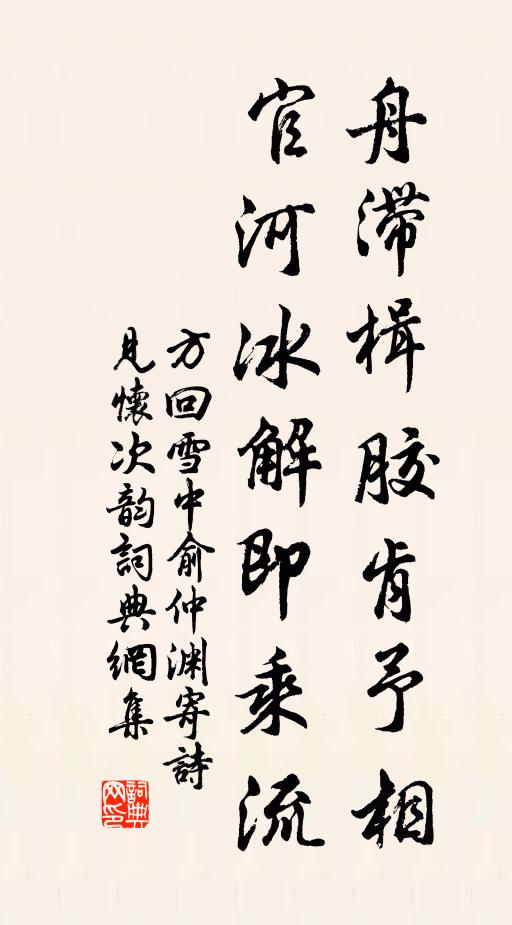 舟滯楫膠肯予相
官河冰解即乘流
方回雪中俞仲渊寄詩
見懷次韵詞典網集
詞典网印